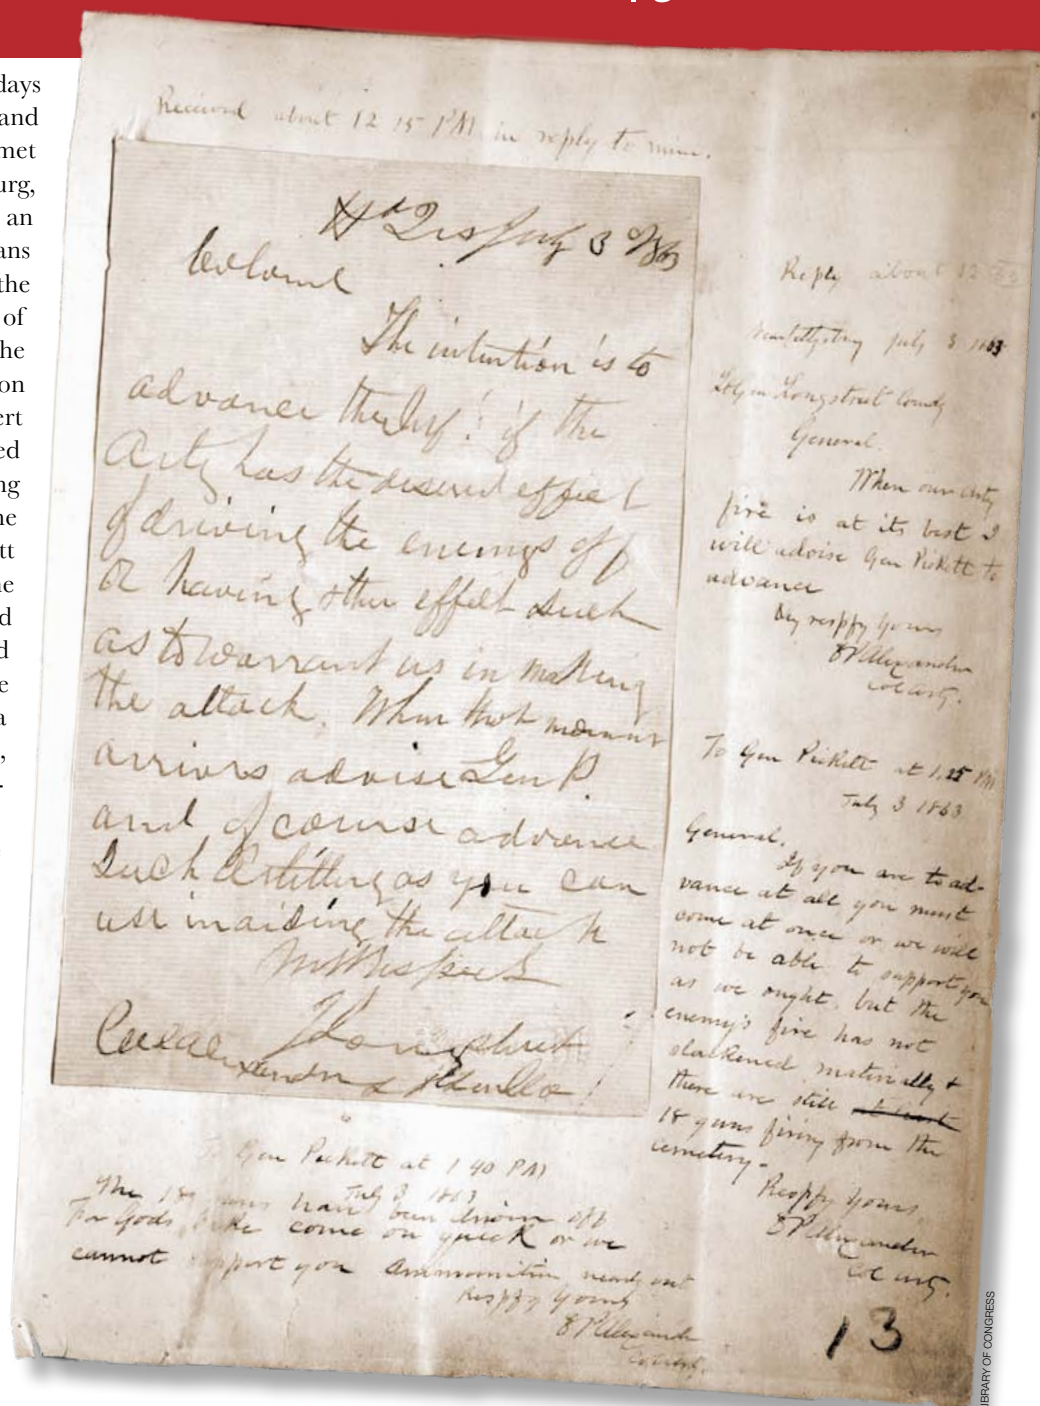 days
and
met
urg,
an
ans
the
of
he
on
ert
ed
ng
ne
tt
ne
d
d
e
a
,
Received about 12 15 PM in reply to mine.
Hd Qrs July 3rd/63
Colonel
The intention is to
advance the Inf. if the
Arty has the desired effect
of driving the enemys off
or having other effect such
as to warrant us in making
the attack. When that moment
arrives advise Gen P.
and of course advance
such Artillery as you can
use in aiding the attack
Longstreet
Col Alexander
Reply about 12
Near Gettysburg July 3 1863
Lt Gen Longstreet Comdg
General.
When our Arty
fire is at its best I
will advise Gen Pickett to
advance
Vy respfy yours
EP Alexander
Col Arty.
To Gen Pickett at 1.25 PM
July 3 1863
General,
If you are to ad-
vance at all you must
come at once or we will
not be able to support you
as we ought, but the
enemy's fire has not
slackened materially &
there are still at least
18 guns firing from the
cemetery.
Respfy yours,
EP Alexander
Col Arty.
To Gen Pickett at 1 40 PM
July 3 1863
The 18 guns have been driven off
For Gods sake come on quick or we
cannot support you Ammunition nearly out
Respfy yours
EP Alexander
Col Arty.
13
LIBRARY OF CONGRESS